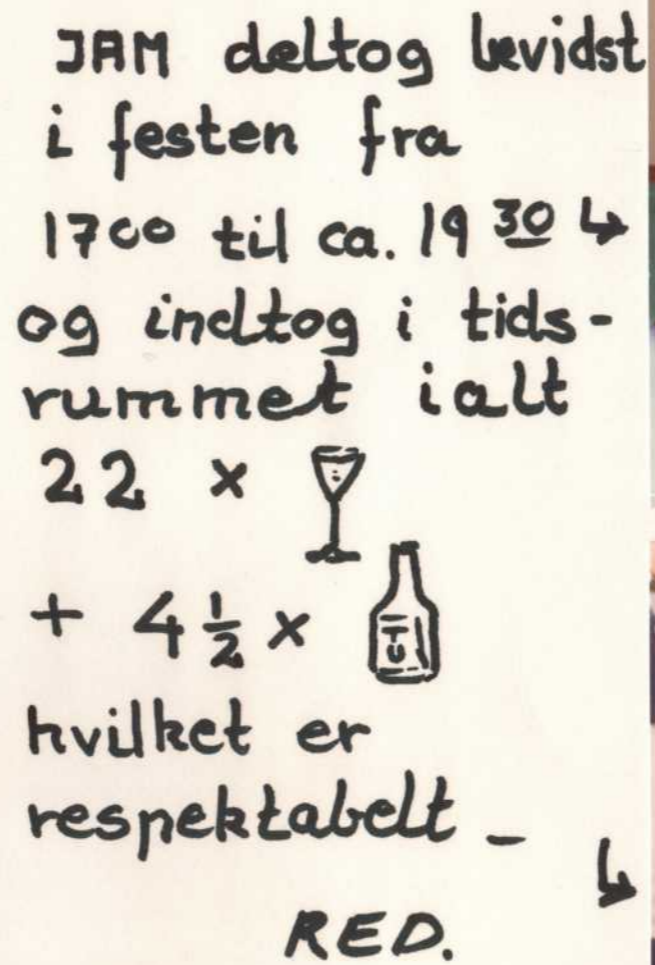 JAM deltog bevidst
i festen fra
1700 til ca. 19 30 ↳
og indtog i tids-
rummet ialt
22 ×
+ 4 ½ ×
TUT
hvilket er
respektabelt _
↳
RED.